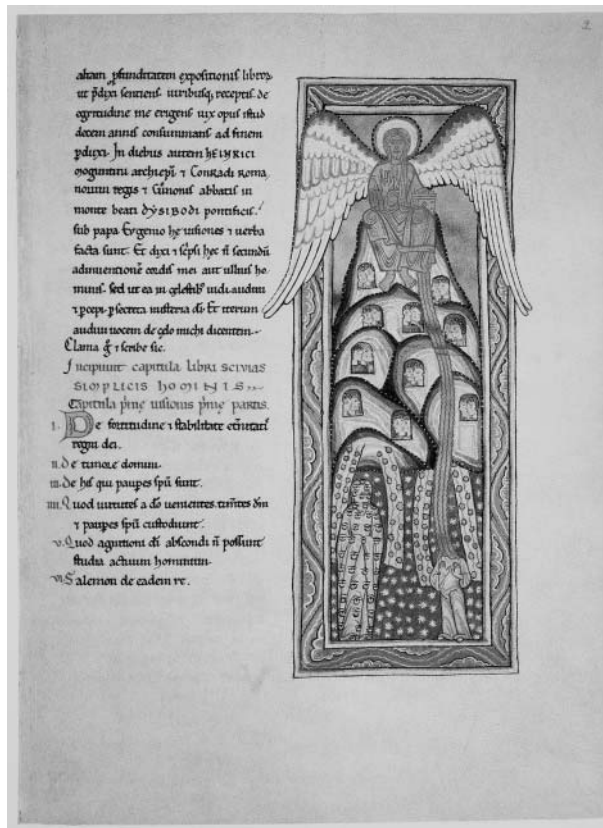 2
altam ꝓfunditatem expositionis libroꝝ
ut p̄dixi sentiens. uiribusq; receptis de
egritudine me erigens uix opus istud
decem annis consummans ad finem
ꝑduxi. In diebus autem HEINRICI
moguntini archiep̄i ⁊ Conradi Roma
norum regis ⁊ Cunonis abbatis in
monte beati DẏSIBODI pontificis.
sub papa Eugenio he uisiones ⁊ uerba
facta sunt. Et dixi ⁊ sc̄psi hec n̄ secundū
adinuentionē cordis mei aut ullius ho
minis. sed ut ea in celestib; uidi audiui
⁊ ꝑcepi ꝑ secreta misteria dī. Et iterum
audiui uocem de celo michi dicentem.
Clama g̊ ⁊ scribe sic.
Incipiunt capitula libri scivias
simplicis hominis
Capitula p̄me uisionis p̄me partis.
i. De fortitudine ⁊ stabilitate et̄nitatis
regni dei.
ii. De timore domini.
iii. De his qui pauꝑes sp̄u sunt.
iiii. Quod uirtutes a dō uenientes. tim̄tes dm̄
⁊ pauꝑes sp̄u custodiunt.
v. Quod agnitioni dī abscondi n̄ possunt
studia actuum hominum.
vi Salemon de eadem re.